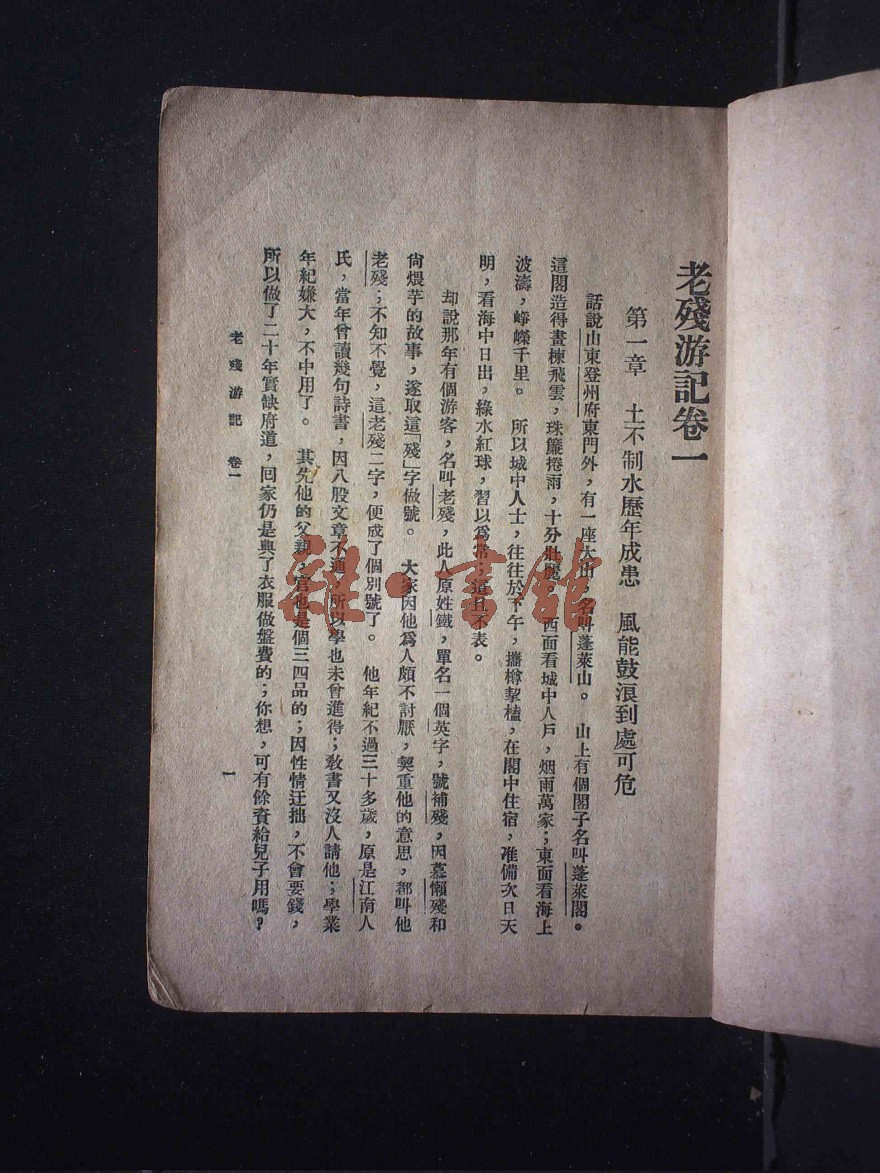 老殘游記卷一
第一章　土不制水歷年成患　風能鼓浪到處可危
話說山東登州府東門外，有一座大山，名叫蓬萊山。　山上有個閣子名叫蓬萊閣。
這閣造得畫棟飛雲，珠簾捲雨，十分壯麗。　西面看城中人戶，烟雨萬家；東面看海上
波濤，崢嶸千里。　所以城中人士，往往於下午，攜樽挈榼，在閣中住宿，准備次日天
明，看海中日出，綠水紅球，習以爲常；這且不表。
却說那年有個游客，名叫老殘，此人原姓鐵，單名一個英字，號補殘，因慕懶殘和
尙煨芋的故事，遂取這「殘」字做號。　大家因他爲人頗不討厭，契重他的意思，都叫他
老殘；不知不覺，這老殘二字，便成了個別號了。　他年紀不過三十多歲，原是江南人
氏，當年曾讀幾句詩書，因八股文章不通，所以學也未曾進得；敎書又沒人請他；學業
年紀嫌大，不中用了。　其先他的父親，官也是個三四品的；因性情迂拙，不會要錢，
所以做了二十年實缺府道，回家仍是典了衣服做盤費的；你想，可有餘資給兒子用嗎？
老殘游記　卷一
一
雜·書館